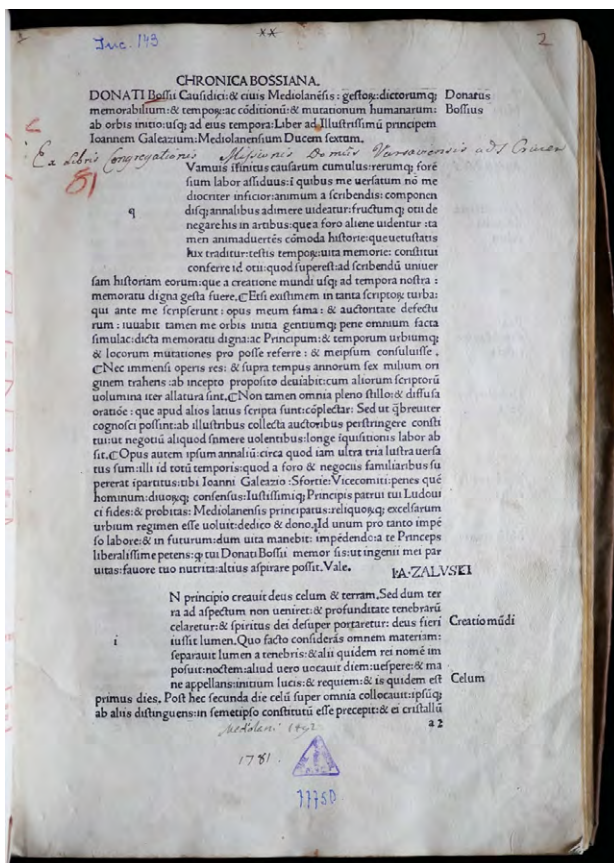 Inc. 143
**
2
CHRONICA BOSSIANA.
DONATI Bossii Causidici:& ciuis Mediolanēsis: gestoꝝ:dictorumq; Donatus
memorabilium:& tempoꝝ:ac cōditionū:& mutationum humanarum: Bossius
ab orbis initio:usq; ad eius tempora:Liber ad Illustrissimū principem
Ioannem Galeazium:Mediolanensium Ducem sextum.
Ex Libris Congregationis Missionis Domus Varsaviensis ad S. Crucem
81
Vamuis ifinitus causarum cumulus:rerumq; forē
sium labor assiduus:i quibus me uersatum nō me
diocriter inficior:animum a scribendis: componen
q
disq; annalibus adimere uideatur:fructumq; otii de
negare his in artibus:que a foro aliene uidentur :ta
men animaduertēs cōmoda historie:que uetustatis
lux traditur:testis tempoꝝ:uita memorie: constitui
conferre id otii:quod superest:ad scribendū uniuer
sam historiam eorum:que a creatione mundi usq; ad tempora nostra :
memoratu digna gesta fuere.⊂Etsi existimem in tanta scriptoꝝ turba:
qui ante me scripserunt : opus meum fama : & auctoritate defectu
rum : iuuabit tamen me orbis initia gentiumq; pene omnium facta
simulac:dicta memoratu digna:ac Principum:& temporum urbiumq;
& locorum mutationes pro posse referre : & meipsum consuluisse .
⊂Nec immensi operis res: & supra tempus annorum sex milium ori
ginem trahens :ab incepto proposito deuiabit:cum aliorum scriptorū
uolumina iter allatura sint.⊂Non tamen omnia pleno stillo:& diffusa
oratiōe : que apud alios latius scripta sunt:cōplectar: Sed ut q̄breuiter
cognosci possint:ab illustribus collecta auctoribus perstringere consti
tui:ut negotiū aliquod sumere uolentibus:longe iquisitionis labor ab
sit.⊂Opus autem ipsum annaliū:circa quod iam ultra tria lustra uersa
tus sum:illi id totū temporis:quod a foro & negociis familiaribus su
pererat ipartitus:tibi Ioanni Galeazio :Sfortie:Vicecomiti:penes quē
hominum:diuoꝝq; consensus:Iustissimiq; Principis patrui tui Ludoui
ci fides:& probitas: Mediolanensis principatus:reliquoꝝq; excelsarum
urbium regimen esse uoluit:dedico & dono.Id unum pro tanto impē
so labore:& in futurum:dum uita manebit: impēdendo:a te Princeps
liberalissime petens:q tui Donati Bossii memor sis:ut ingenii mei par
uitas:fauore tuo nutrita:altius aspirare possit.Vale.
I·A·ZALVSKI
N principio creauit deus celum & terram.Sed dum ter
ra ad aspectum non ueniret:& profunditate tenebrarū
celaretur:& spiritus dei desuper portaretur: deus fieri Creatio mūdi
i
iussit lumen.Quo facto considerās omnem materiam:
separauit lumen a tenebris:&alii quidem rei nomē im
posuit:noctem:aliud uero uocauit diem:uespere:& ma
ne appellans:initium lucis:& requiem:& is quidem est Celum
primus dies. Post hec secunda die celū super omnia collocauit:ipsūq;
ab aliis distinguens:in semetipso constitutū esse precepit:& ei cristallū
a 2
Mediolani 1492
1781.
7775D